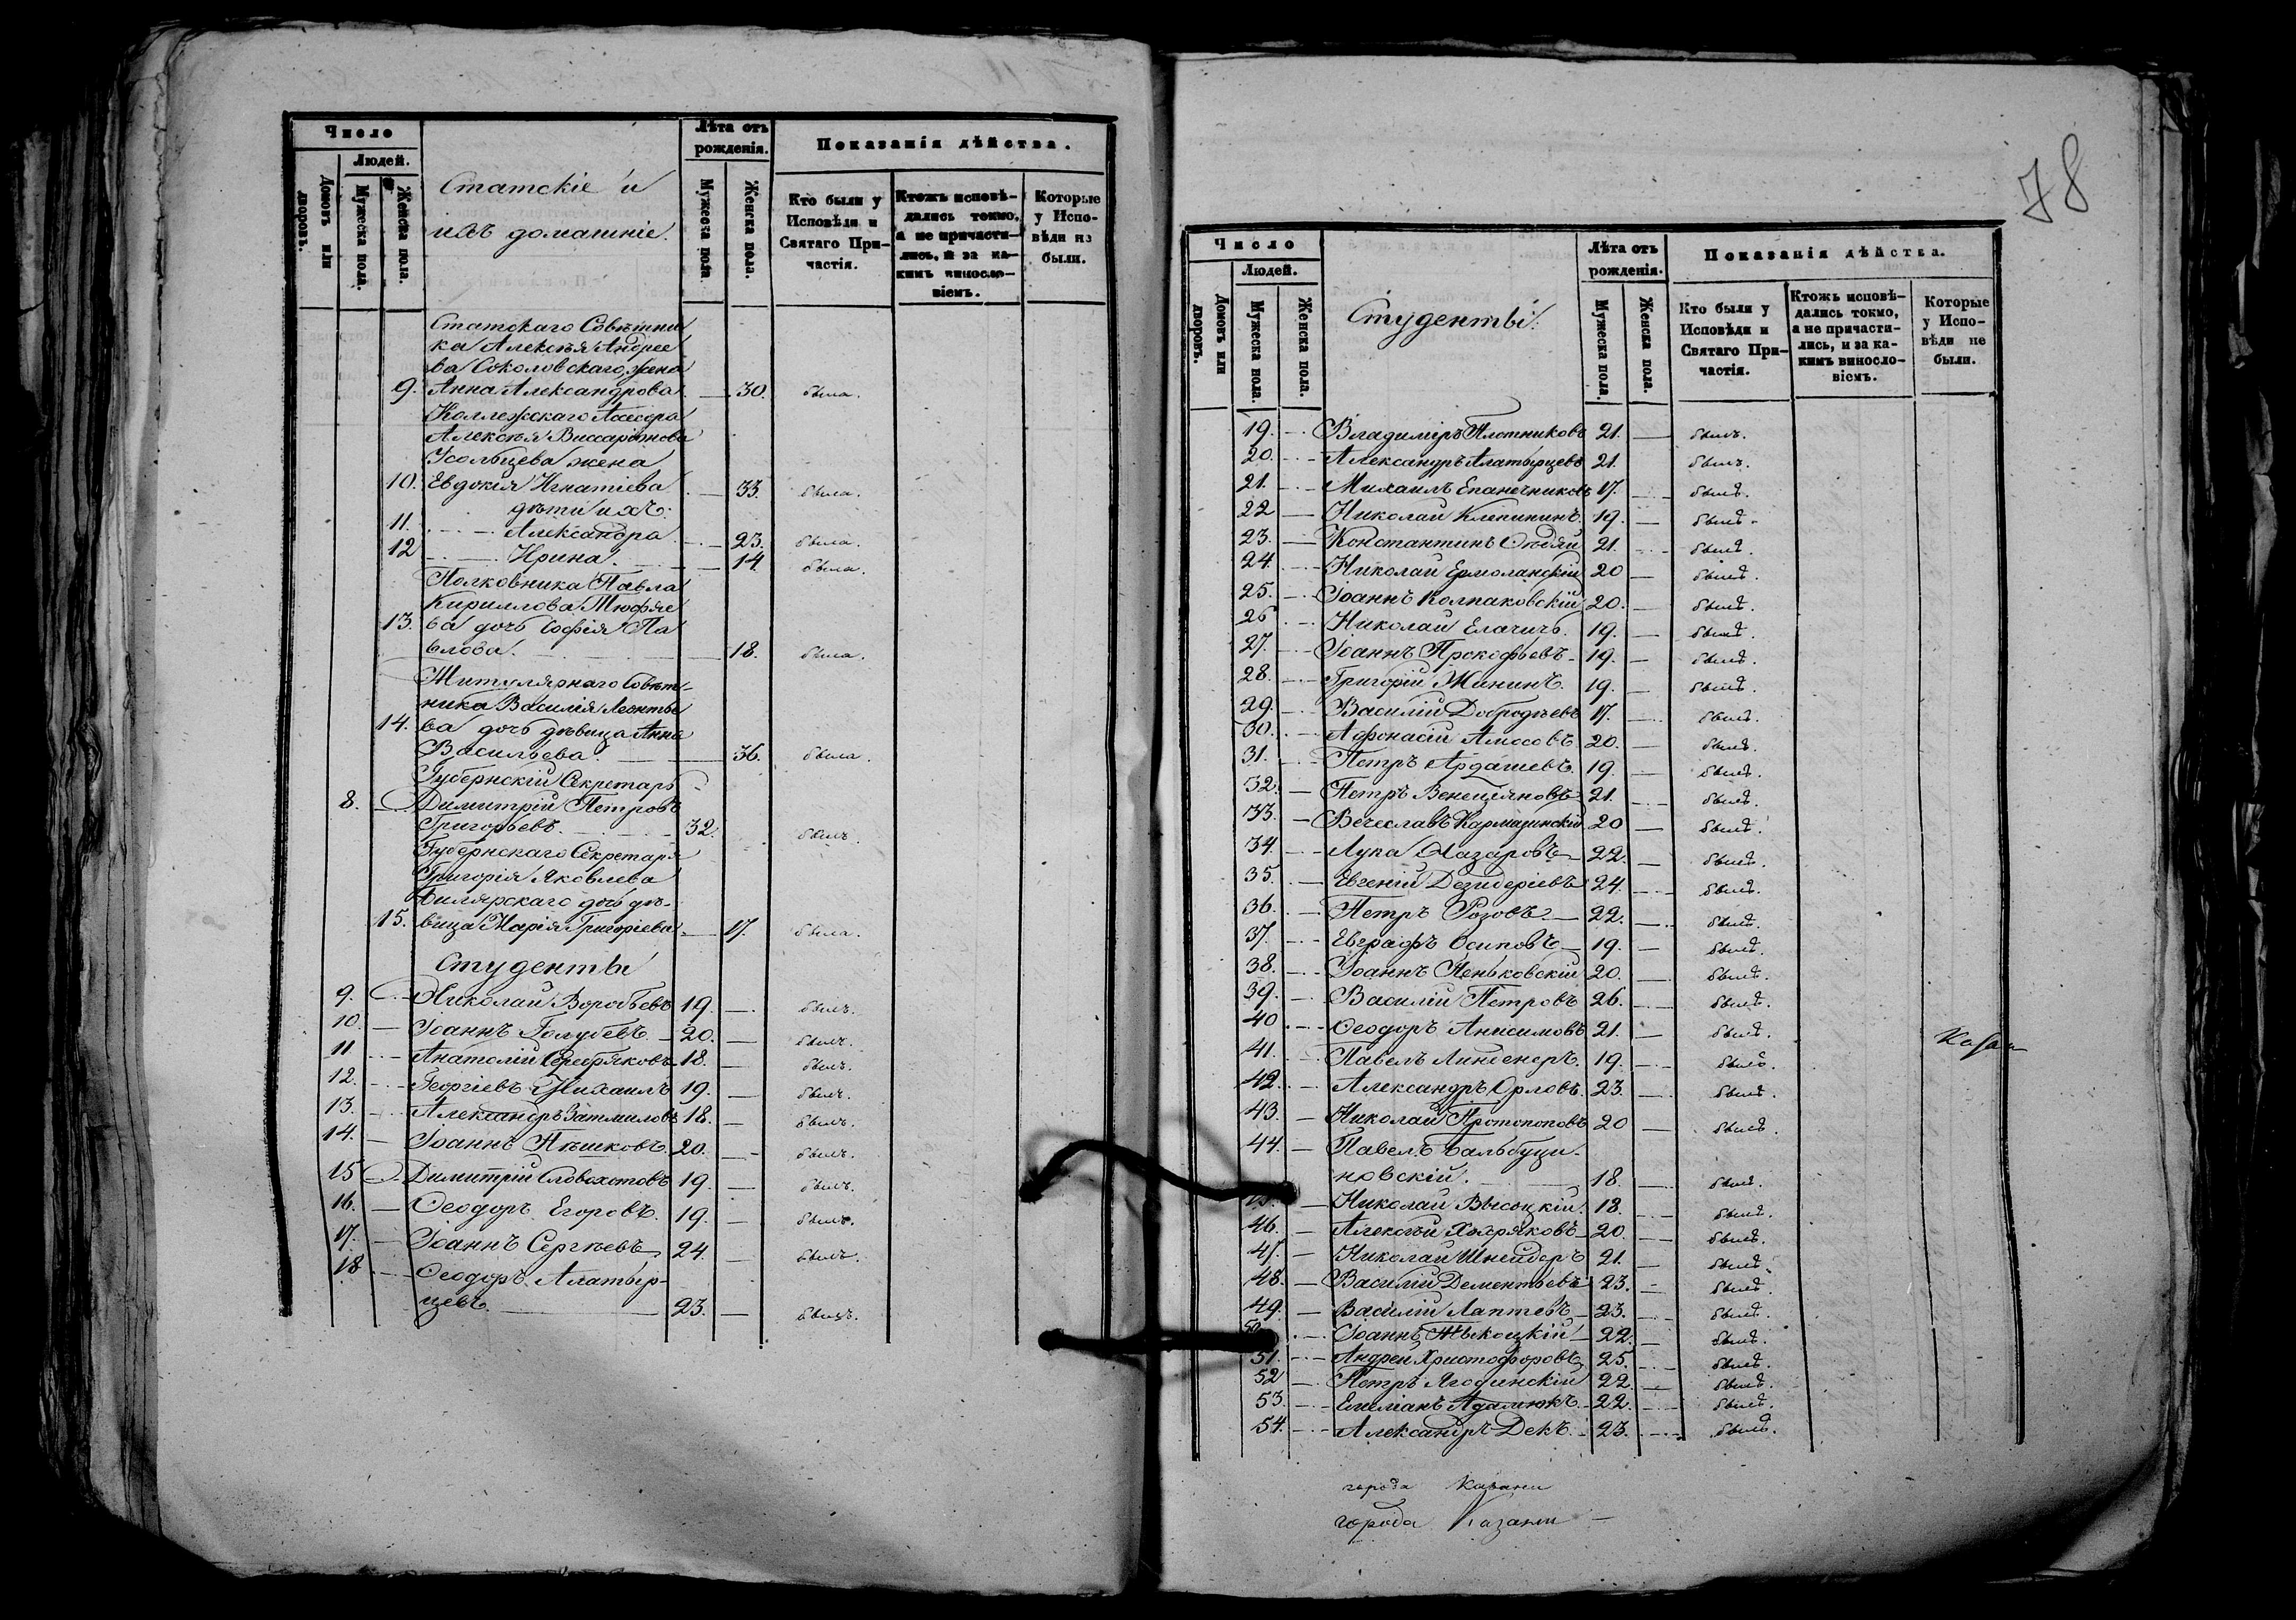 Число
Людей.
Домовъ или дворовъ.
Мужеска пола.
Женска пола.
Статскіе и
ихъ домашніе.
Лѣта отъ рожденія.
Мужеска пола
Женска пола.
Показанія дѣйства.
Кто были у Исповѣди и Святаго Причастія.
Ктожъ исповѣдались токмо, а не причастились, и за какимъ винословіемъ.
Которые у Исповѣди не были.
Статскаго Совѣтни
ка Алексѣя Андрее
ва Соколовскаго жена
9. Анна Александрова 30. была.
Коллежскаго Ассесора
Алексѣя Виссаріонова
Усольцева жена
10. Евдокія Игнатіева 33. была.
дѣти ихъ:
11. Александра 23. была.
12 Ирина. 14. была.
Полковника Павла
Кириллова Тюфяе
13. ва дочь Софія Па
влова. 18. была.
Титулярнаго Совѣт-
ника Василія Леонтье
14. ва дочь дѣвица Анна
Васильева. 36. была.
Губернскій Секретарь
8. Димитрій Петровъ
Григорьевъ. 32. былъ.
Губернскаго Секретаря
Григорія Яковлева
Билярскаго дочь дѣ-
15. вица Марія Григоріева 17. была.
Студенты
9. Николай Воробьевъ 19. былъ.
10. Іоаннъ Голубевъ 20. былъ.
11 Анатолій Серебряковъ 18. былъ.
12. Георгіевъ Михаилъ 19. былъ.
13. Александръ 18. былъ.
14. Іоаннъ Пѣшковъ 20. былъ.
15 Димитрій Словохотовъ 19. былъ.
16. Ѳеодоръ Егоровъ. 19. былъ.
17. Іоаннъ Сергѣевъ 24. былъ.
18 Ѳеодоръ Алатыр-
цевъ. 23. былъ.
78
Число
Людей.
Домовъ или дворовъ.
Мужеска пола.
Женска пола.
Студенты:
Лѣта отъ рожденія.
Мужеска пола.
Женска пола.
Показанія дѣйства.
Кто были у Исповѣди и Святаго Причастія.
Ктожъ исповѣдались токмо, а не причастились, и за какимъ винословіемъ.
Которые у Исповѣди не были.
19. Владиміръ Плотниковъ 21. былъ.
20. Александръ Алатырцевъ 21. былъ.
21. Михаилъ Епанечниковъ 17. былъ.
22 Николай Клепининъ. 19. былъ.
23. Константинъ 21. былъ.
24. Николай Ермоланскій 20 былъ.
25. Іоаннъ Колпаковскій 20. былъ.
26 Николай Елачичъ. 19. былъ.
27. Іоаннъ Прокофьевъ 19. былъ.
28. Григорій Жанинъ. 19. былъ.
29. Василій Добродѣевъ 17. былъ.
30. Афонасій Амосовъ 20. былъ.
31. Петръ Ардашевъ. 19. былъ.
32. Петръ Венеціановъ 21. былъ.
33. Вечеславъ Кармазинскій 20 былъ.
34. Лука Лазаровъ 22. былъ.
35. Евгеній Дезидеріевъ 24. былъ.
36. Петръ Розовъ 22. былъ.
37. Евграфъ Осиповъ 19. былъ.
38. Іоаннъ Пеньковскій 20. былъ.
39. Василій Петровъ 26. былъ.
40 Ѳеодоръ Анисимовъ 21. былъ.
41. Павелъ 19. былъ.
42. Александръ Орловъ. 23. былъ.
43. Николай Протопоповъ 20 былъ.
44. Павелъ Бальбуци-
новскій. 18. былъ.
Николай Высоцкій. 18. былъ.
46. Алексѣй Хохряковъ 20. былъ.
47. Николай Шнейдеръ 21. былъ.
48. Василій Дементьевъ 23. былъ.
49. Василій Лаптевъ 23. былъ.
Іоаннъ 22. былъ.
51. Андрей Христофоровъ 25. былъ.
52 Петръ Ягодинскій 22. былъ.
53. Емиліанъ Адамюкъ. 22. былъ.
54. Александръ Декъ. 23. былъ.
города Казани
города Казани